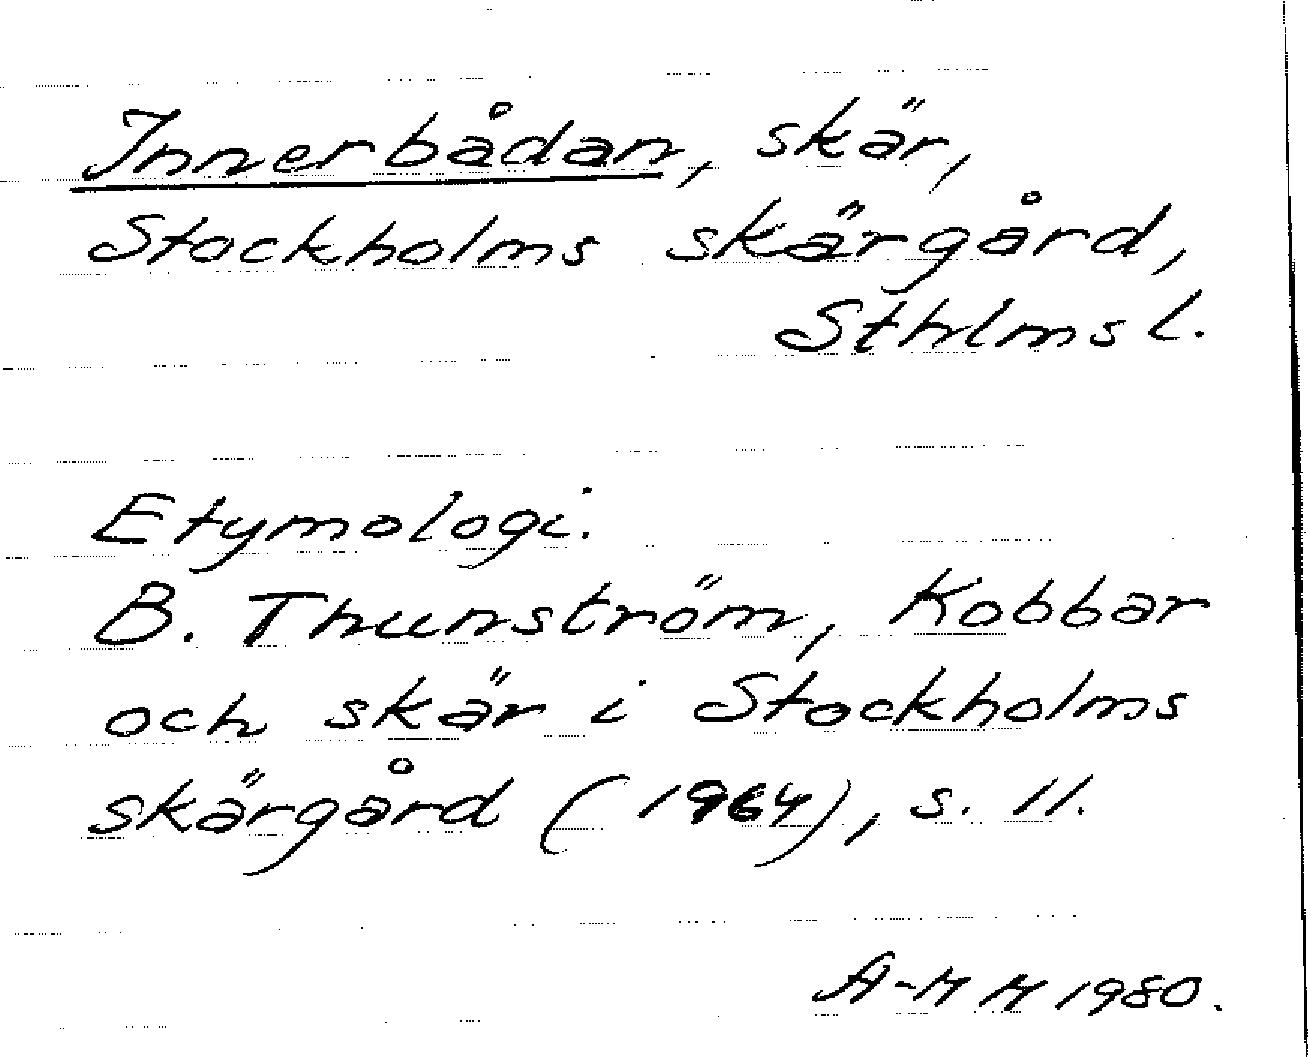 Innerbådan, skär,
Stockholms skärgård,
Sthlms l.
Etymologi.
B. Thunström, Kobbar
och skär i Stockholms
skärgård (1964), s. 11.
A-M H 1980.